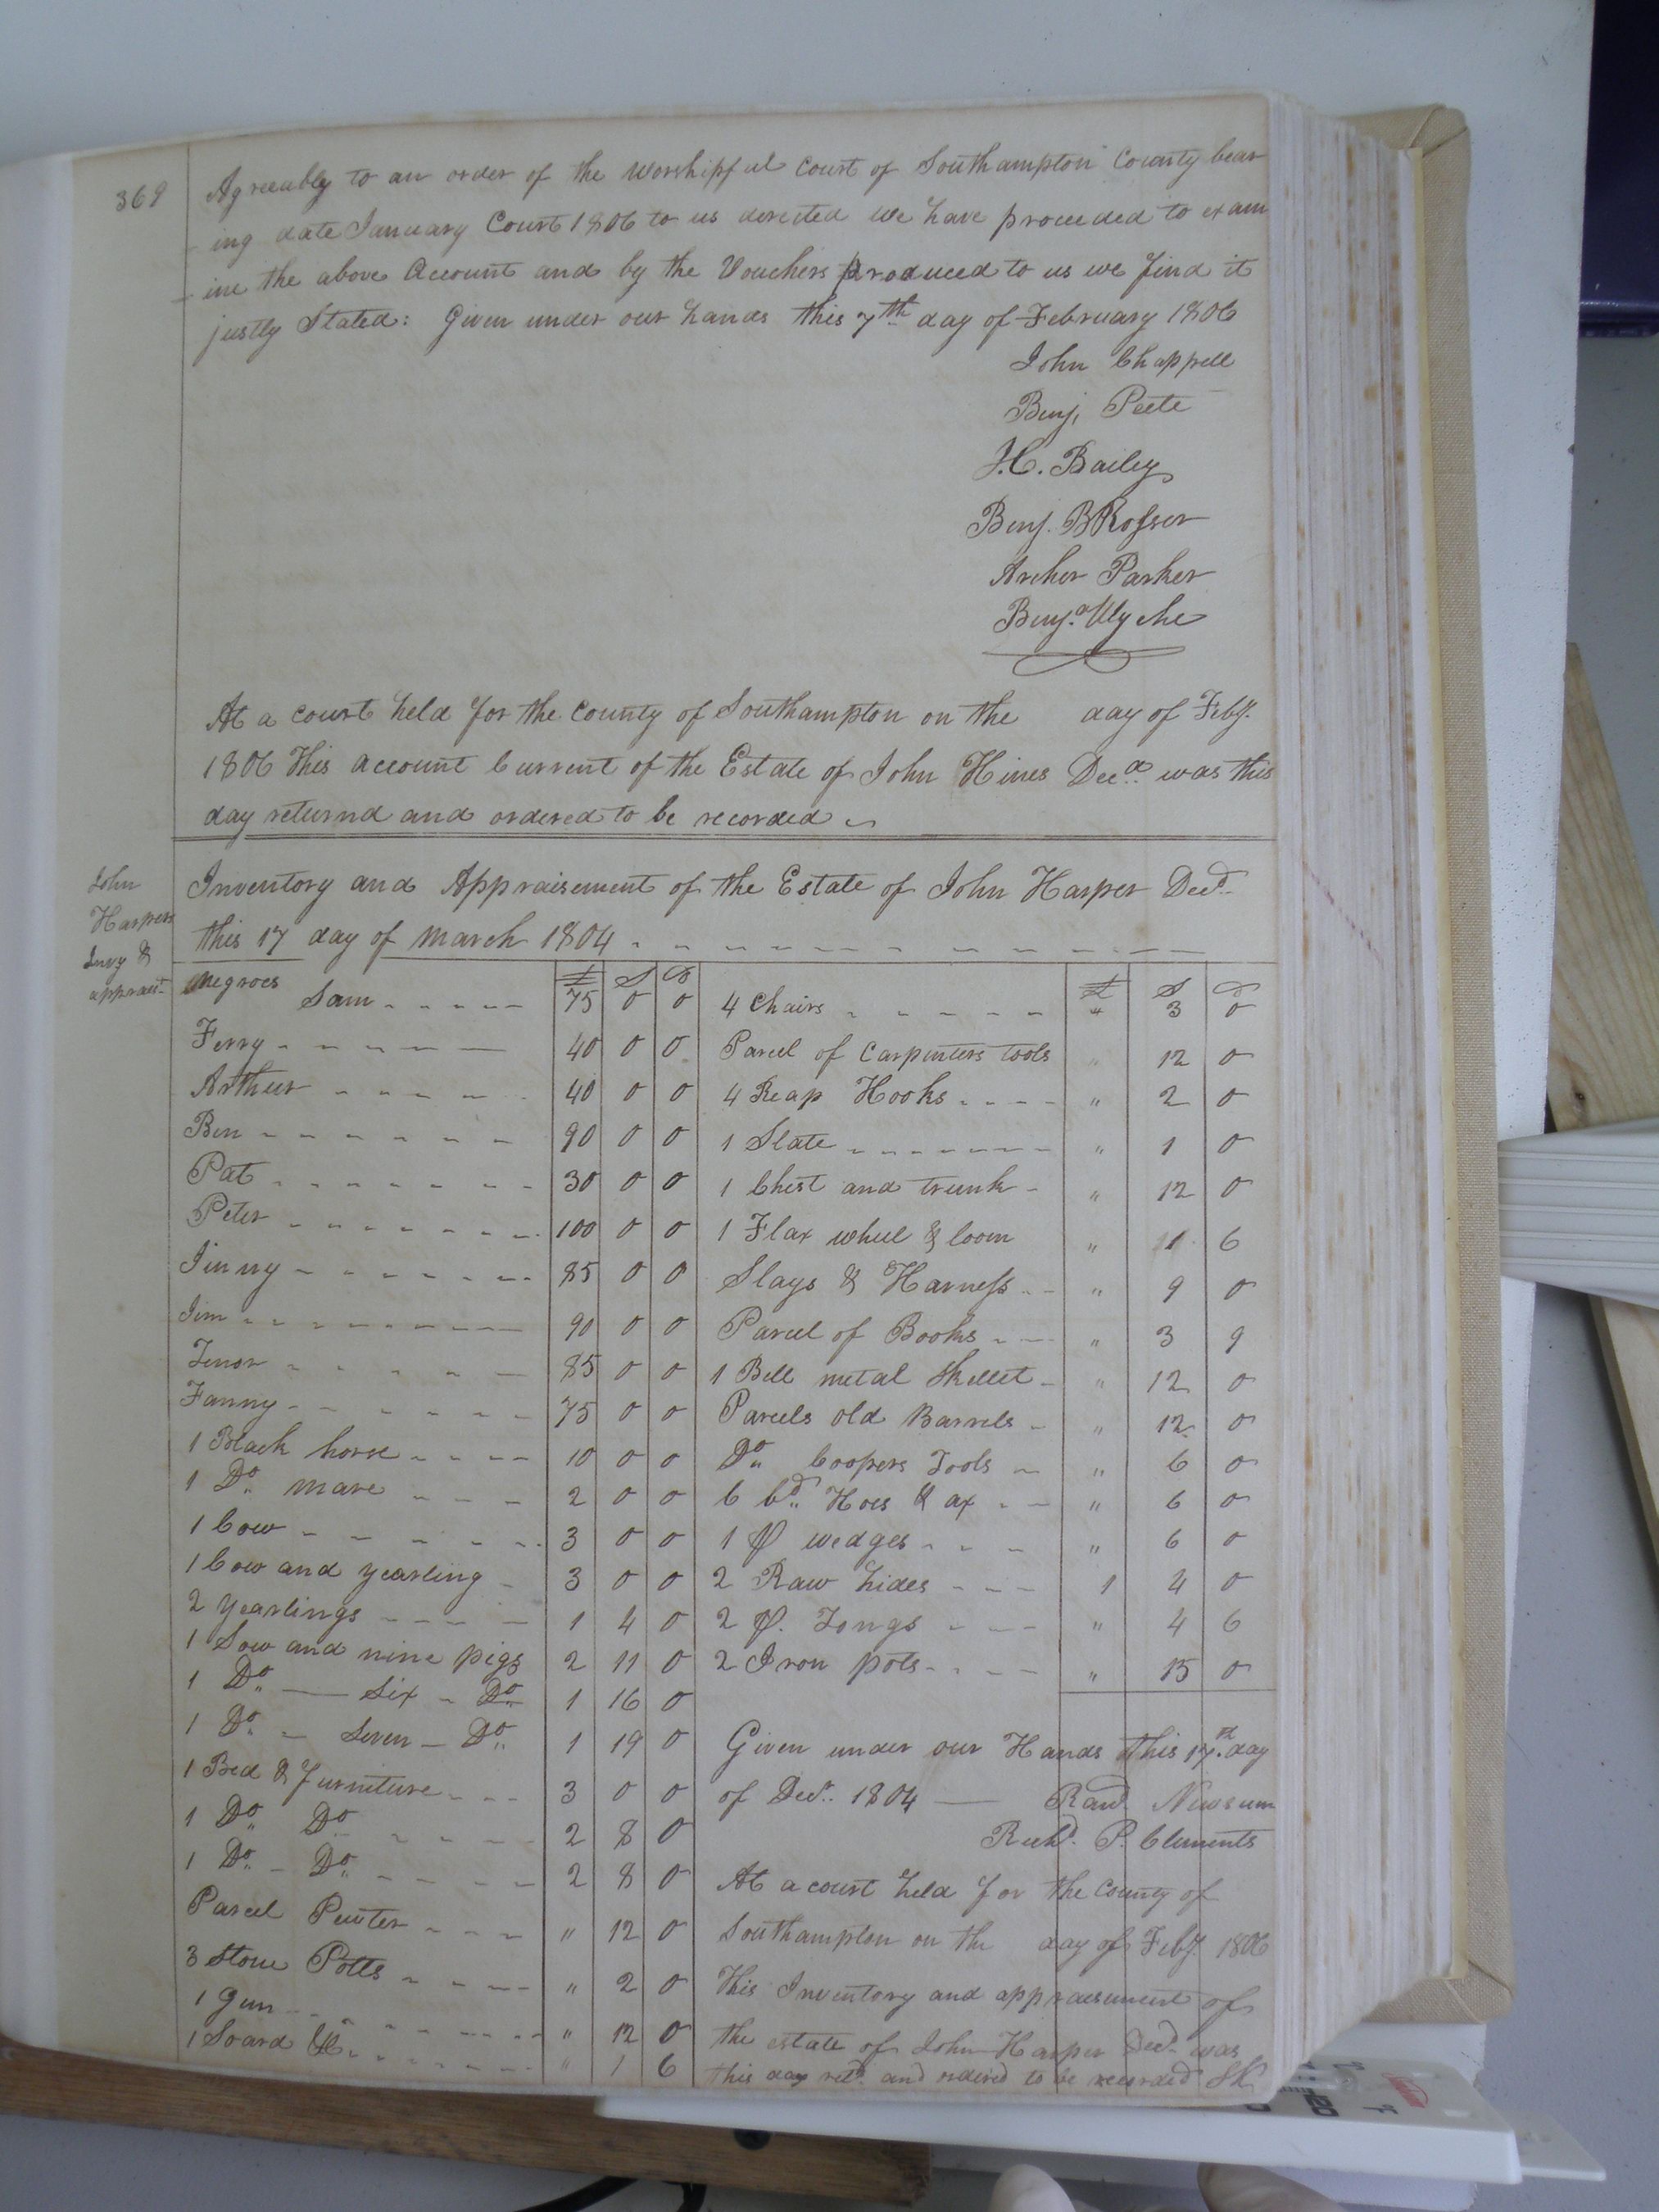 369
Agreeably to an order of the Worshipful Court of Southampton County bear
ing date January Court 1806 to us derected we have proceeded to exam
ine the above Account and by the Vouchers produced to us we find it
justly Stated: Given under our hands this 7th day of February 1806
John Chappell
Benj. Peete
J.C. Bailey
Benj. B Rosser
Archer Parker
Benja. Wyche
At a court held for the County of Southampton on the day of Feby.
1806 This account Current of the Estate of John Hines Decd. was this
day returnd and ordered to be recorded
John
Harpers
Invy &
appraist.
Inventory and Appraisement of the Estate of John Harper Decd.
this 17 day of March 1804
£ S D
Negroes
Sam 75 0 0
Ferry 40 0 0
Arthur 40 0 0
Ben 90 0 0
Pat 30 0 0
Peter 100 0 0
Jinny 85 0 0
Jim 90 0 0
Tenor 85 0 0
Fanny 75 0 0
1 Black horse 10 0 0
1 Do. mare 2 0 0
1 Cow 3 0 0
1 Cow and yearling 3 0 0
2 yearlings 1 4 0
1 Sow and nine pigs 2 11 0
1 Do. Six Do. 1 16 0
1 Do. Seven Do. 1 19 0
1 Bed & furniture 3 0 0
1 Do. Do. 2 8 0
1 Do. Do. 2 8 0
Parcel Pewter " 12 0
3 Stone Potts " 2 0
1 gun " 12 0
1 Soard &c " 1 6
£ S D
4 Chairs " 3 0
Parcel of Carpinters tools " 12 0
4 Reap Hooks " 2 0
1 Slate " 1 0
1 Chest and trunk " 12 0
1 Flax wheel & loom " 11 6
Slays & Harness " 9 0
Parcel of Books " 3 9
1 Bell metal Skellet " 12 0
Parcels old Barrels " 12 0
Do. Coopers Tools " 6 0
6 Hoes & ax " 6 0
1 p wedges " 6 0
2 Raw hides 1 4 0
2 p. Tongs " 4 6
2 Iron pots " 15 0
Given under our Hands this 17th. day
of Decr. 1804 Newsum
Richd. P. Clements
At a court held for the County of
Southampton on the day of Feby. 1806
This Inventory and appraisement of
the estate of John Harper Decd. was
this day retd. and ordered to be recorded